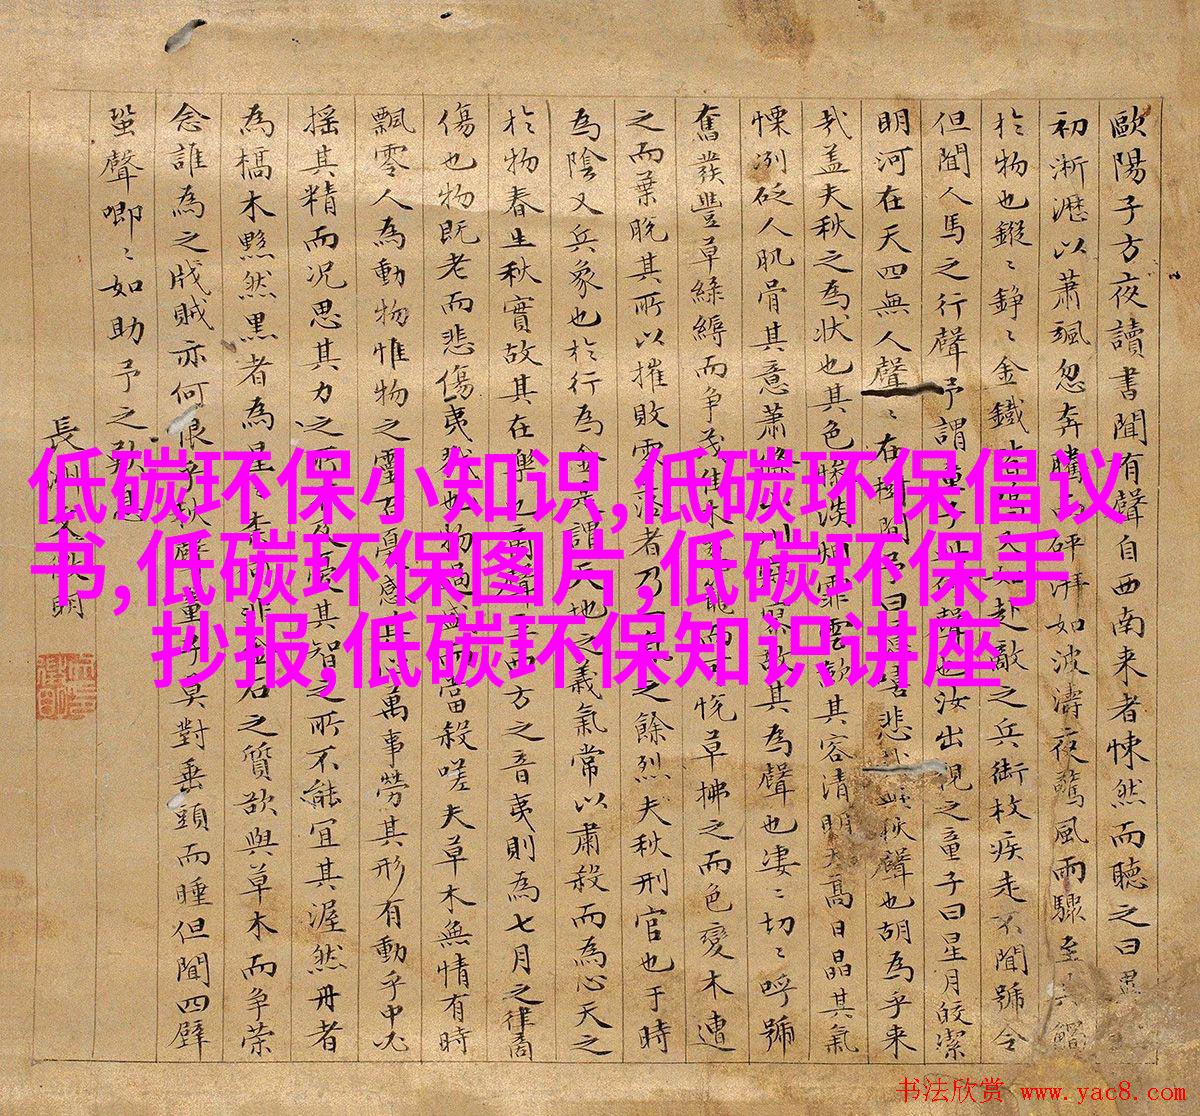 歐陽子方夜讀書聞有聲自西南来者悚然而聴之曰異
初淅瀝以蕭颯忽奔騰而砰湃如波濤夜驚風雨驟至其觸
於物也鏦〻錚〻金鐵赴敵之兵銜枚疾走不聞號令
但聞人馬之行聲予謂童子聲也汝出視之童子曰星月皎潔
明河在天四無人聲〻在樹間予曰嘻悲哉此秋聲也胡為乎来
哉盖夫秋之為状也其色慘淡烟霏雲歛其容清明天髙日晶其氣
慄冽砭人肌骨其意蕭條山川寂寥故其為聲也凄〻切〻呼號
奮發豐草緑縟而争茂佳木而可悦草拂之而色變木遭
之而葉脱其所以摧敗零落者乃之餘烈夫秋刑官也于時
為陰又兵象也於行為金是謂天地之義氣常以肅殺而為心天之
於物春生秋實故其在樂也商聲主西方之音夷則為七月之律商
傷也物既老而悲傷夷戮也物過盛而當殺嗟夫草木無情有時
飄零人為動物惟物之靈百憂感其心萬事勞其形有動乎中必
揺其精而况思其力之所及憂其智之所不能宜其渥然丹者
為槁木黟然黒者為星〻奈非金石之質欲與草木而争荣
念誰為之戕賊亦何恨乎秋聲童子莫對垂頭而睡但聞四壁
蛩聲唧〻如助予之歎息
長洲文徵明
低碳环保小知识,低碳环保倡议
书,低碳环保图片,低碳环保手
抄报,低碳环保知识讲座
书法欣赏 www.yac8.com